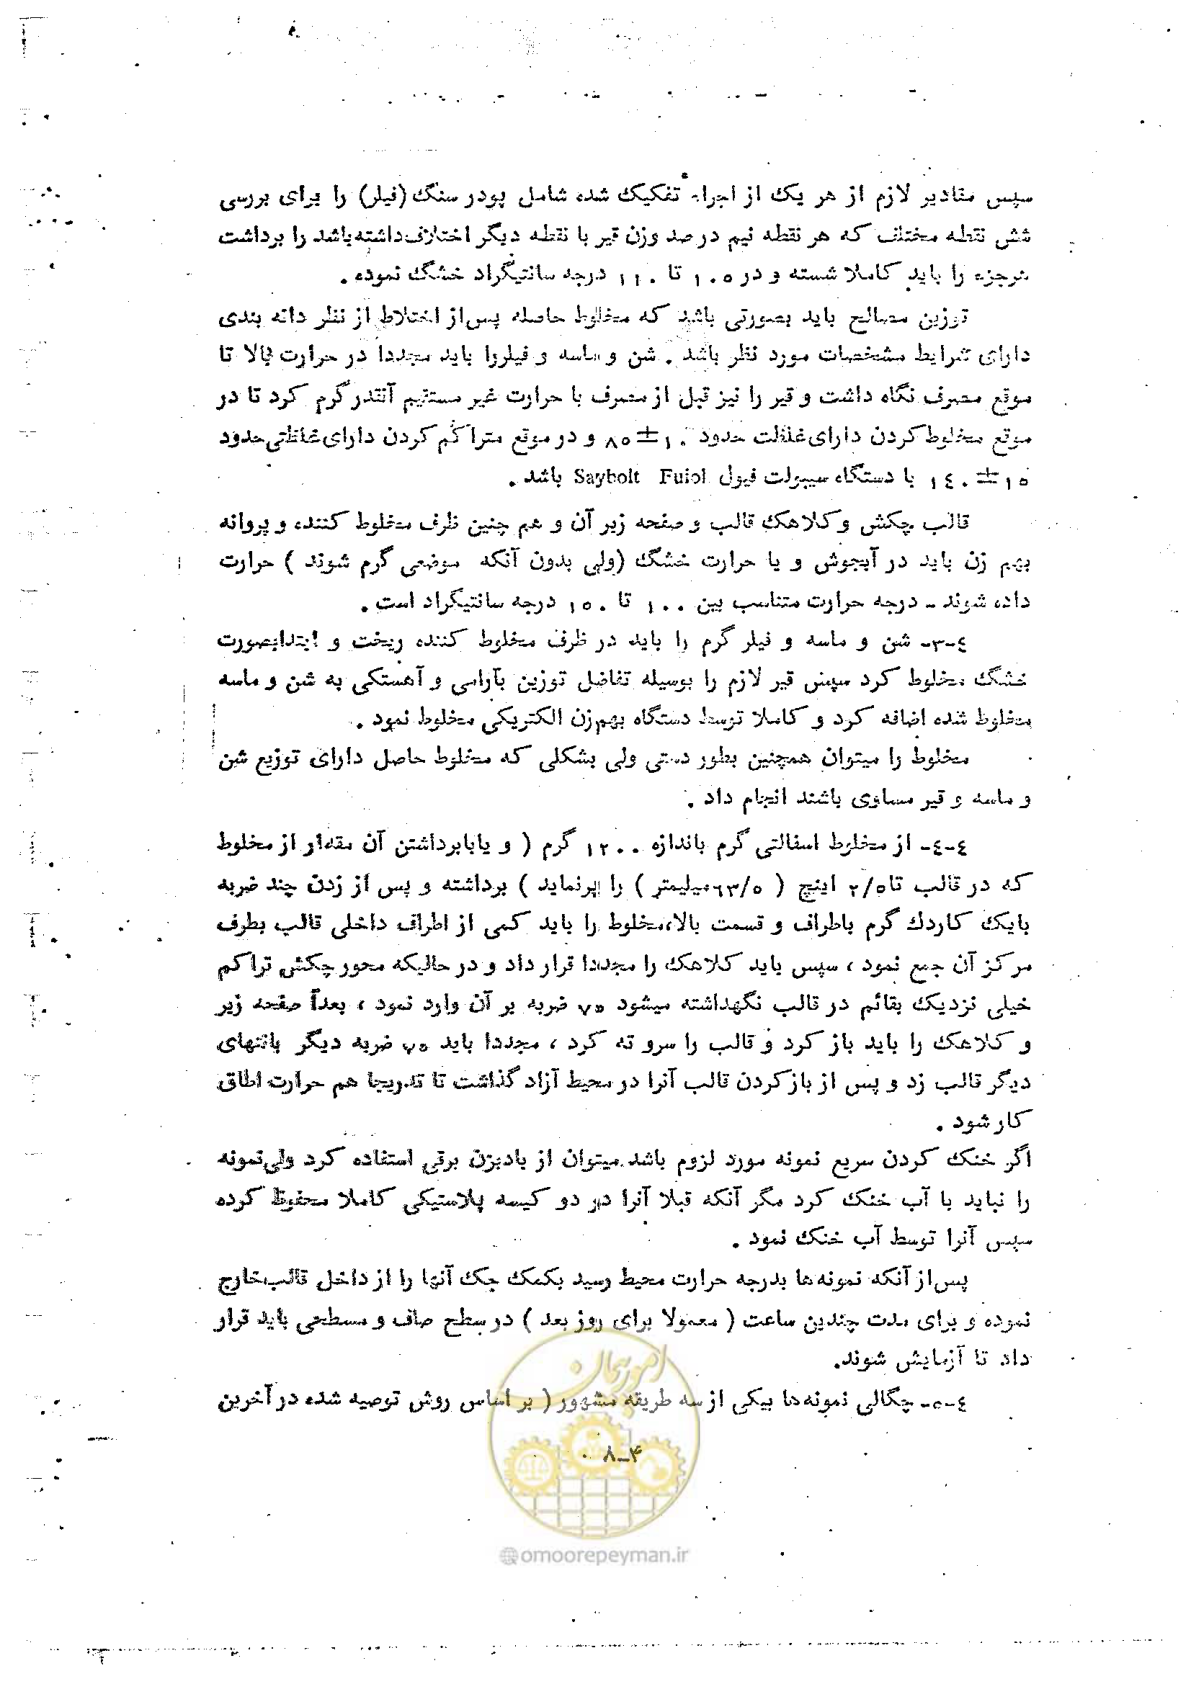 سپس مقادیر لازم از هر یک از اجزاء تفکیک شده شامل پودر سنگ (فیلر) را برای بررسی
شش نقطه مختلف که هر نقطه نیم درصد وزن قیر با نقطه دیگر اختلاف داشته باشد را برداشت
هرجزء را باید کاملا شسته و در ۱۰۵ تا ۱۱۰ درجه سانتیگراد خشگ نموده .
توزین مصالح باید بصورتی باشد که مخلوط حاصله پس از اختلاط از نظر دانه بندی
دارای شرایط مشخصات مورد نظر باشد . شن و ماسه و فیلررا باید مجددا در حرارت بالا تا
موقع مصرف نگاه داشت و قیر را نیز قبل از مصرف با حرارت غیر مستقیم آنقدر گرم کرد تا در
موقع مخلوط کردن دارای غلظت حدود ۸۵±۱۰ و در موقع متراکم کردن دارای غلظتی حدود
۱۵±۱٤۰ با دستگاه سیبولت فیول Saybolt Fuiol باشد .
قالب چکش و کلاهک قالب و صفحه زیر آن و هم چنین ظرف مخلوط کننده و پروانه
بهم زن باید در آبجوش و یا حرارت خشگ (ولی بدون آنکه موضعی گرم شوند ) حرارت
داده شوند ـ درجه حرارت متناسب بین ۱۰۰ تا ۱۵۰ درجه سانتیگراد است .
٤-۳- شن و ماسه و فیلر گرم را باید در ظرف مخلوط کننده ریخت و ابتدابصورت
خشگ مخلوط کرد سپس قیر لازم را بوسیله تفاضل توزین بآرامی و آهستگی به شن و ماسه
مخلوط شده اضافه کرد و کاملا توسط دستگاه بهم‌زن الکتریکی مخلوط نمود .
مخلوط را میتوان همچنین بطور دستی ولی بشکلی که مخلوط حاصل دارای توزیع شن
و ماسه و قیر مساوی باشند انجام داد .
٤-٤- از مخلوط اسفالتی گرم باندازه ۱۲۰۰ گرم ( و یابابرداشتن آن مقدار از مخلوط
که در قالب تا ۲/۵ اینچ ( ۶۳/۵میلیمتر ) را پرنماید ) برداشته و پس از زدن چند ضربه
بایک کاردک گرم باطراف و قسمت بالا،مخلوط را باید کمی از اطراف داخلی قالب بطرف
مرکز آن جمع نمود ، سپس باید کلاهک را مجددا قرار داد و در حالیکه محور چکش تراکم
خیلی نزدیک بقائم در قالب نگهداشته میشود ۷۵ ضربه بر آن وارد نمود ، بعداً صفحه زیر
و کلاهک را باید باز کرد و قالب را سرو ته کرد ، مجددا باید ۷۵ ضربه دیگر بانتهای
دیگر قالب زد و پس از بازکردن قالب آنرا در محیط آزاد گذاشت تا تدریجا هم حرارت اطاق
کار شود .
اگر خنک کردن سریع نمونه مورد لزوم باشد میتوان از بادبزن برقی استفاده کرد ولی‌نمونه
را نباید با آب خنک کرد مگر آنکه قبلا آنرا در دو کیسه پلاستیکی کاملا محفوظ کرده
سپس آنرا توسط آب خنک نمود .
پس‌از آنکه نمونه‌ها بدرجه حرارت محیط رسید بکمک جک آنها را از داخل قالب‌خارج
نموده و برای مدت چندین ساعت ( معمولا برای روز بعد ) در سطح صاف و مسطحی باید قرار
داد تا آزمایش شوند.
٤-۵- چگالی نمونه‌ها بیکی از سه طریقه مشهور ( بر اساس روش توصیه شده در آخرین
۸-۴
امور پیمان
@omoorepeyman.ir